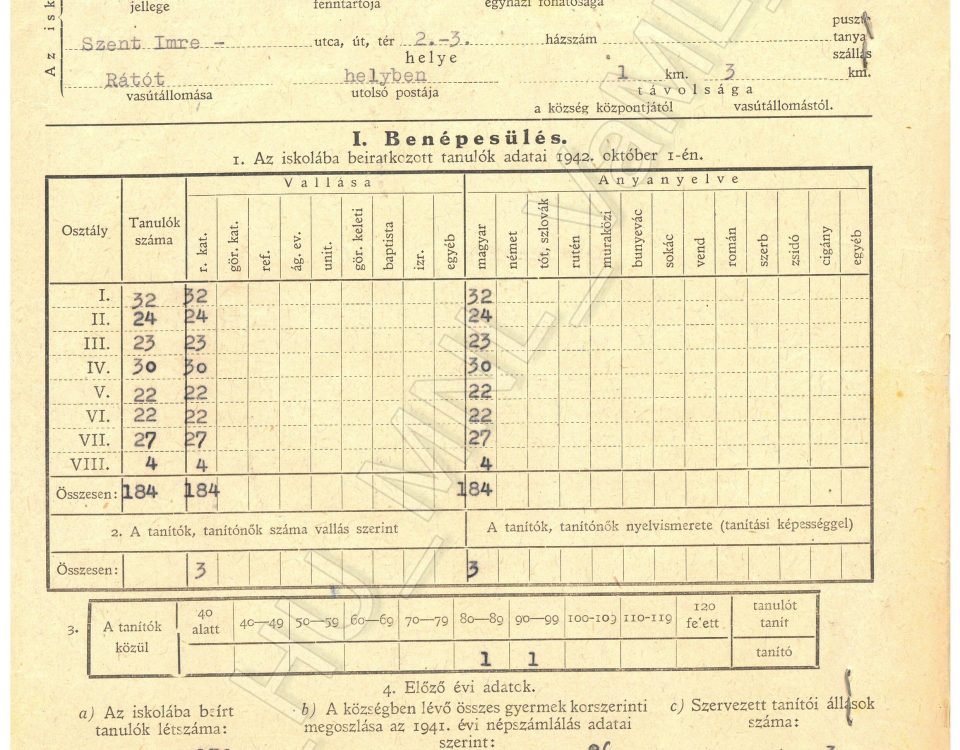 jellege fenntartója egyházi főhatósága
Az isk
Szent Imre - utca, út, tér 2.-3. házszám puszta
tanya
szállás
helye
Rátót helyben 1 km. 3 km.
vasútállomása utolsó postája távolsága
a község központjától vasútállomástól.
I. Benépesülés.
1. Az iskolába beiratkozott tanulók adatai 1942. október 1-én.
Vallása Anyanyelve
Osztály Tanulók száma r. kat. gör. kat. ref. ág. ev. unit. gör. keleti baptista izr. egyéb magyar német tót, szlovák rutén muraközi bunyevác sokác vend román szerb zsidó cigány egyéb
I. 32 32 32
II. 24 24 24
III. 23 23 23
IV. 30 30 30
V. 22 22 22
VI. 22 22 22
VII. 27 27 27
VIII. 4 4 4
Összesen: 184 184 184
2. A tanítók, tanítónők száma vallás szerint A tanítók, tanítónők nyelvismerete (tanítási képességgel)
Összesen: 3 3
3. A tanítók közül 40 alatt 40—49 50—59 60—69 70—79 80—89 90—99 100-109 110-119 120 fe'ett tanulót tanít
1 1 tanító
4. Előző évi adatok.
a) Az iskolába beírt b) A községben lévő összes gyermek korszerinti c) Szervezett tanítói állások
tanulók létszáma: megoszlása az 1941. évi népszámlálás adatai száma:
szerint:
HU_MNL_VaML